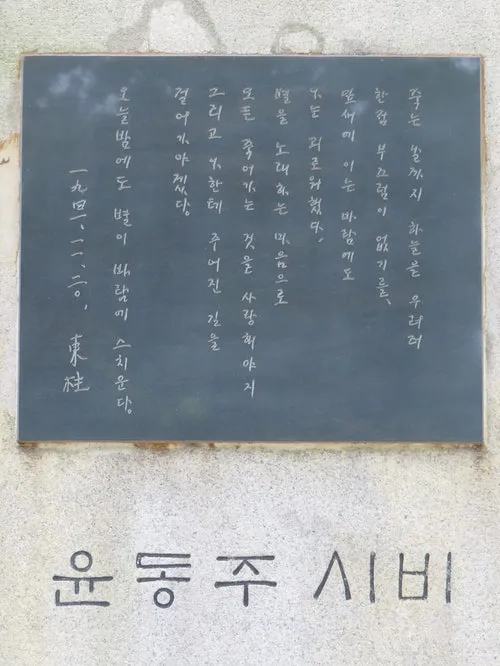 죽는 날까지 하늘을 우러러
한점 부끄럼이 없기를,
잎새에 이는 바람에도
나는 괴로워했다.
별을 노래하는 마음으로
모든 죽어가는 것을 사랑해야지
그리고 나한테 주어진 길을
걸어가야겠다.
오늘밤에도 별이 바람에 스치운다.
一九四一、一一、二〇、 東柱
윤동주 시비